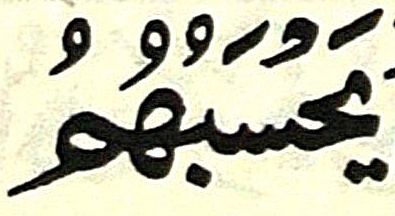 يَحۡسَبُهُمُ